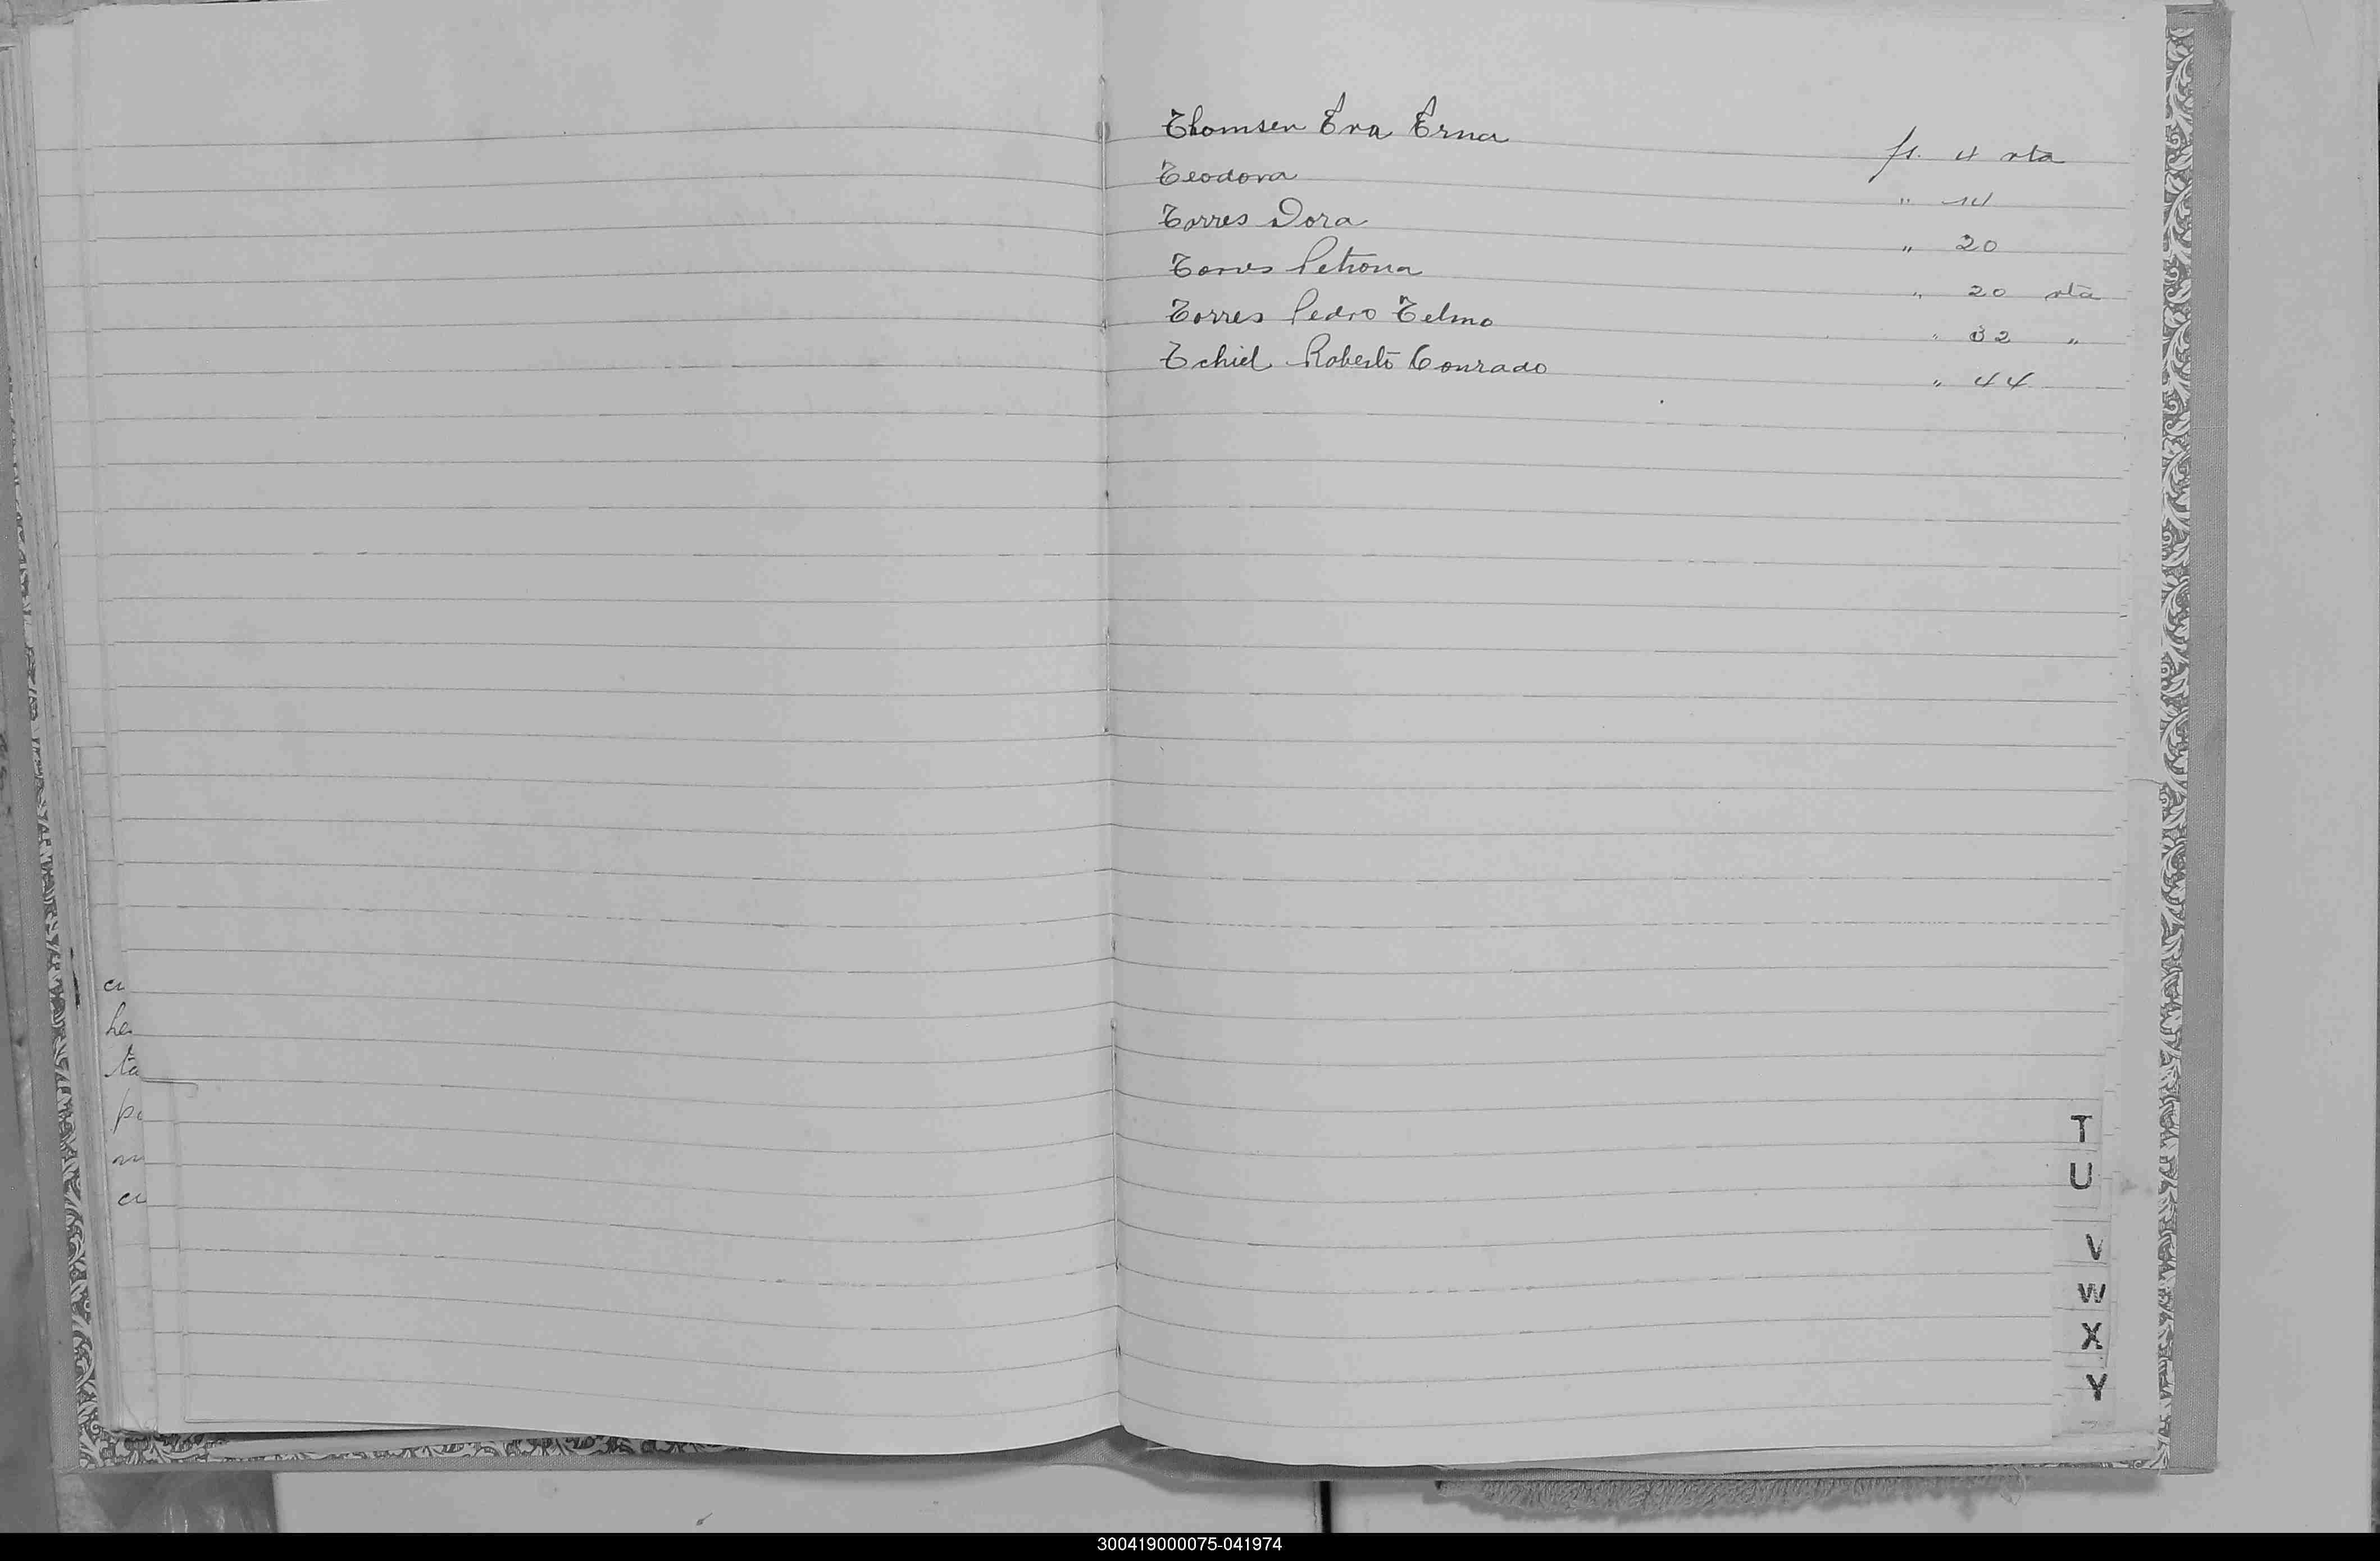 Thomsen Eva Erna fs. 4 vta
Teodora " 14
Torres Dora " 20
Torres Petrona " 20 vta
Torres Pedro Telmo " 32 "
Tchiel Roberto Conrado " 44
a
he
ta
pa
m
a
T
U
V
W
X
Y
300419000075-041974